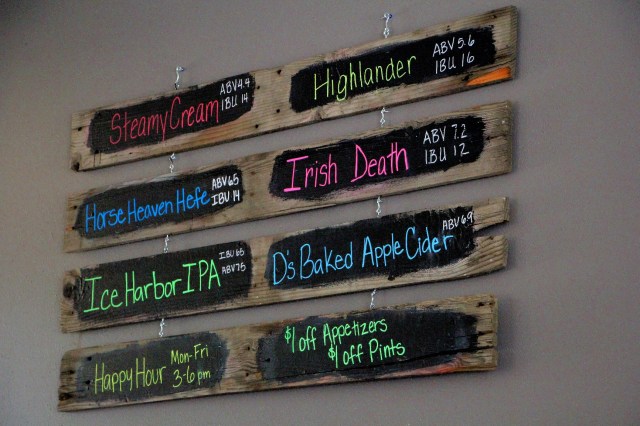 Steamy Cream
ABV 4.4
IBU 14
Highlander
ABV 5.6
IBU 16
Horse Heaven Hefe
ABV 65
IBU 14
Irish Death
ABV 7.2
IBU 12
Ice Harbor IPA
IBU 65
ABV 75
D's Baked Apple Cider
ABV 6.9
Happy Hour
Mon-Fri
3-6 pm
$1 off Appetizers
$1 off Pints